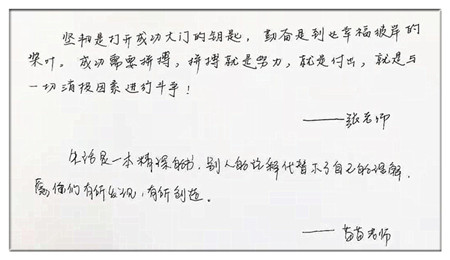 坚韧是打开成功大门的钥匙，勤奋是到达幸福彼岸的
桨叶。成功需要拼搏，拼搏就是努力，就是付出，就是与
一切消极因素进行斗争！
——张老师
生活是一本精深的书，别人的注释代替不了自己的理解，
愿你们有所发现，有所创造。
——苗苗老师